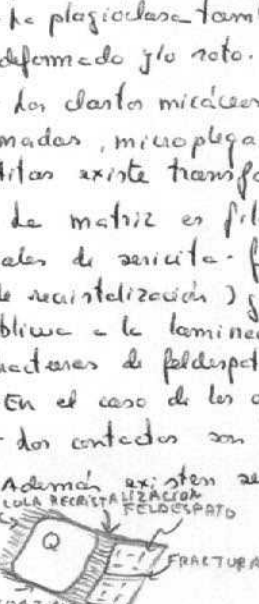 La plagioclasa tam
deformado y/o roto.
Los clastos micáceos
madas, microplega
titas existe transfo
La matriz es fil
ales de sericita.
de recristalización)
oblicua a la laminea
racturas de feldespat
En el caso de los
los contactos son
Además existen se
COLA RECRISTALIZACIÓN
FELDESPATO
Q
FRACTURA